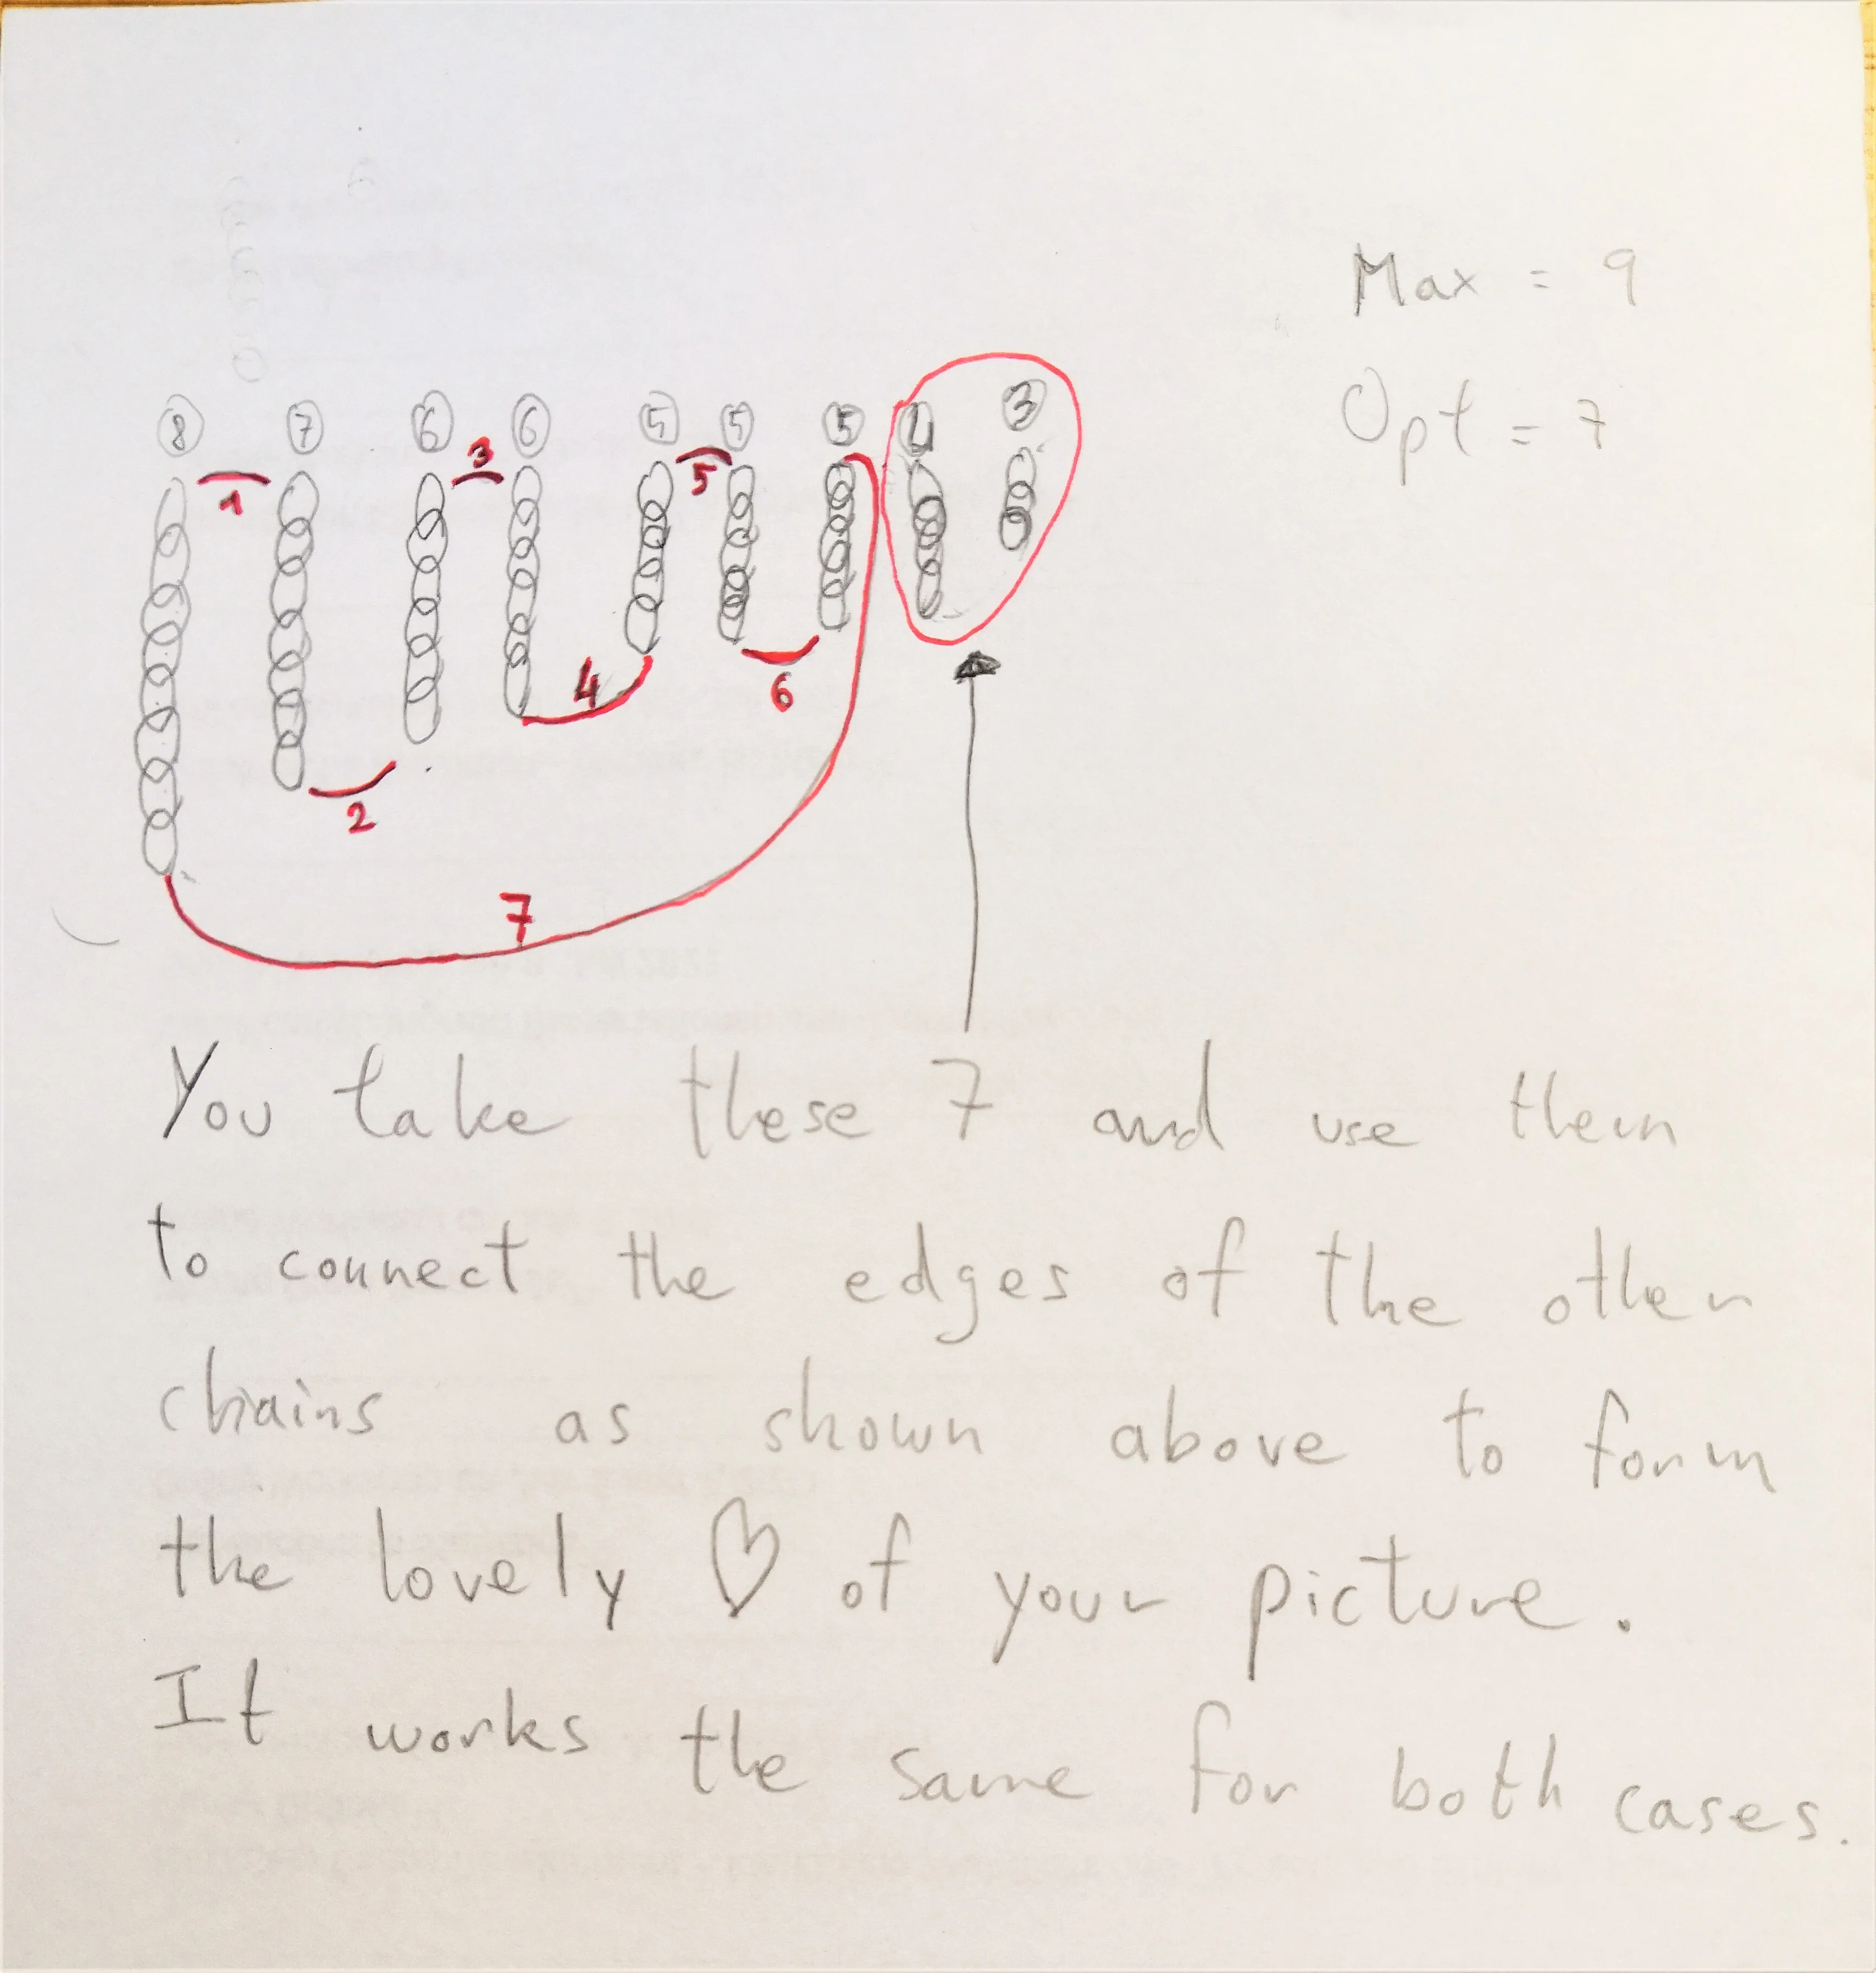 Max = 9
Opt = 7
8 7 6 6 5 5 5 4 3
1 3 5
4 6
2
7
You take these 7 and use them
to connect the edges of the other
chains as shown above to form
the lovely ♡ of your picture.
It works the same for both cases.